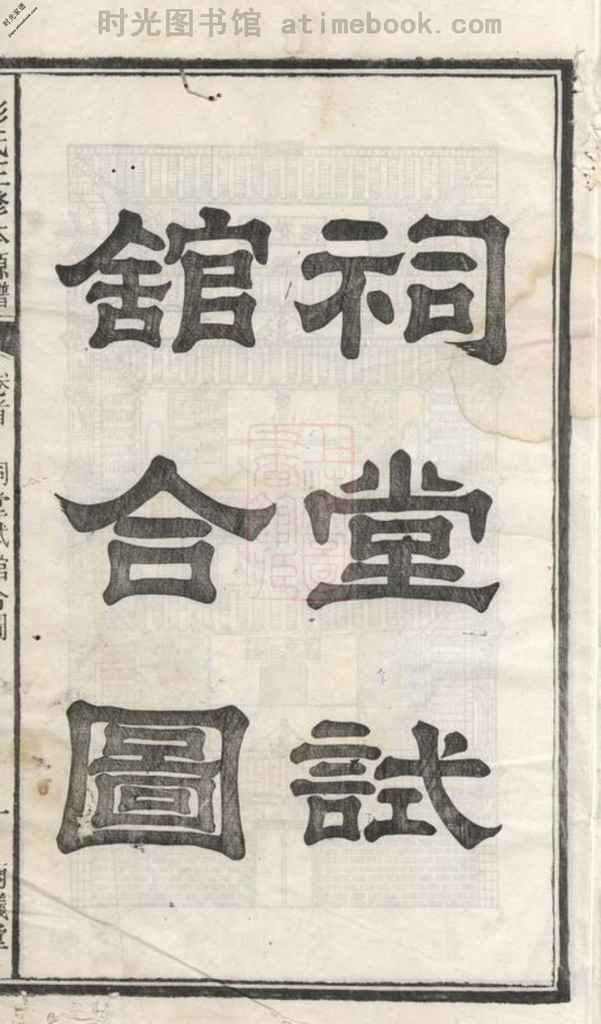 时光图书馆 atimebook.com
祠堂試
舘合圖
氏三修本源譜
卷首
祠堂試館合圖
一